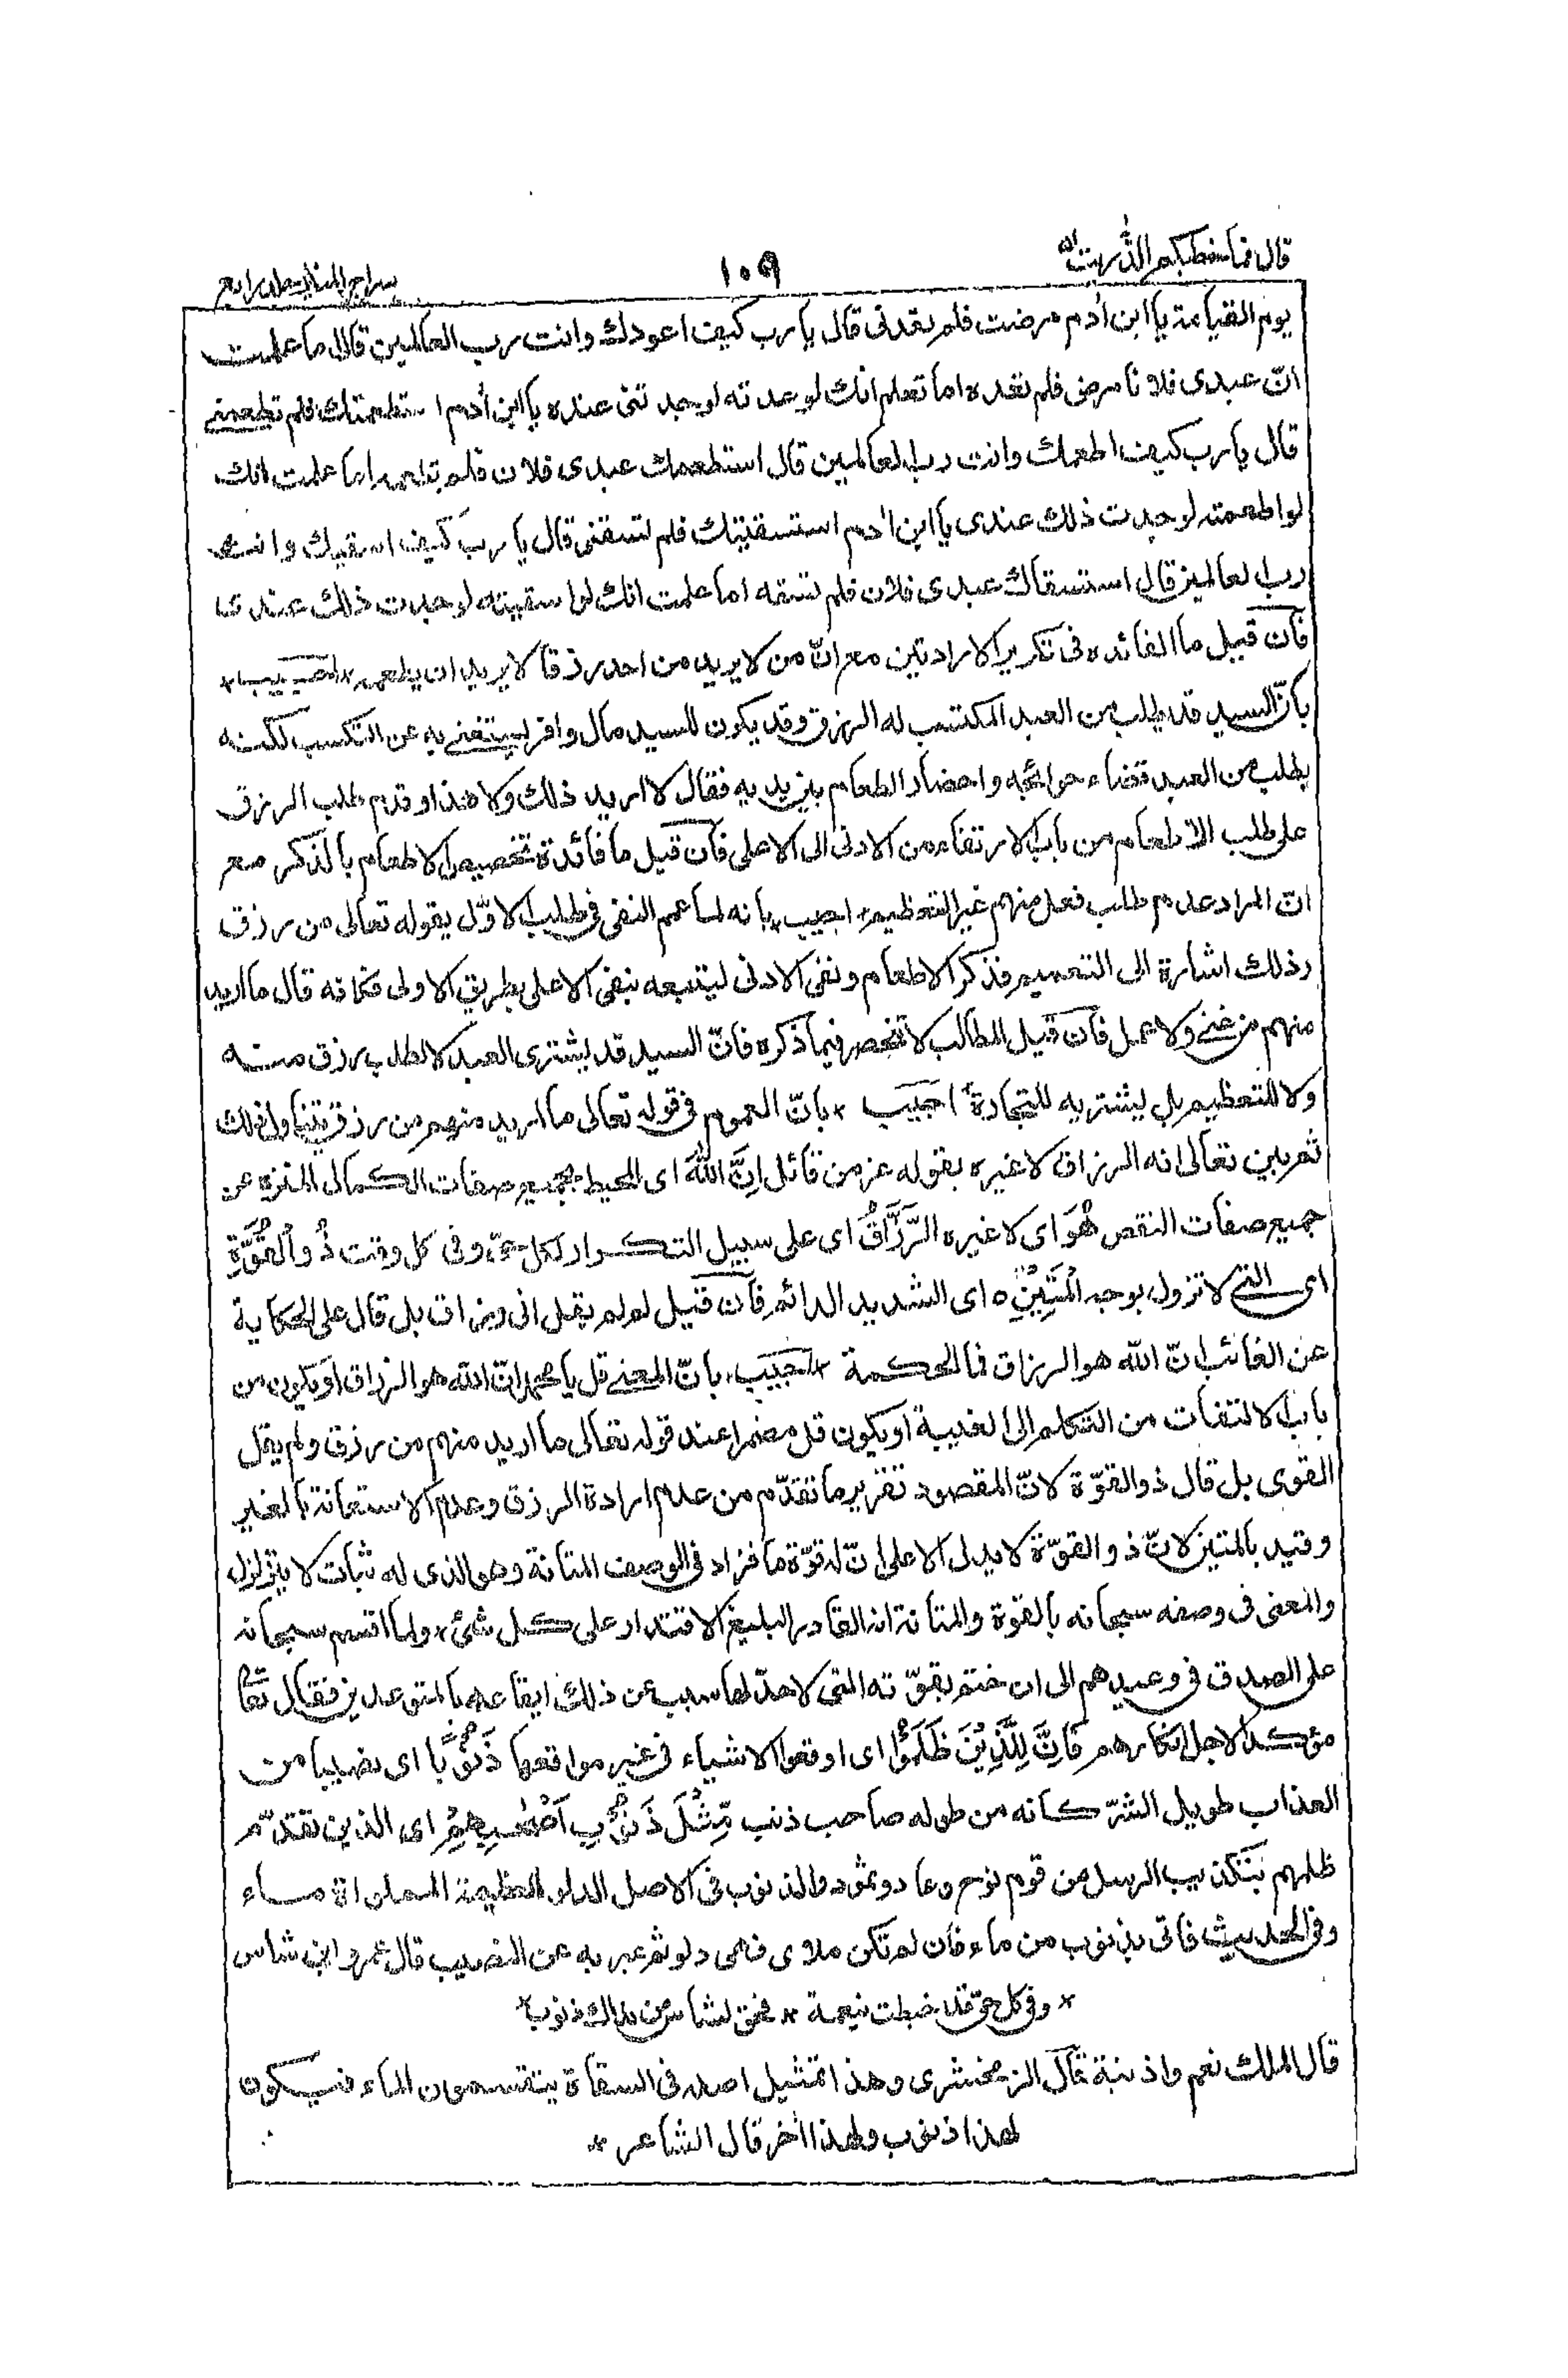 قال فما خطبكم الذّٰريٰت ١٠٩ سراج المنير جلد رابع
يوم القيامة يا ابن اٰدم مرضت فلم تعدنى قال يا رب كيف اعودك وانت رب العالمين قال اما علمت
انّ عبدى فلانا مرض فلم تعده اما تعلم انك لو عدته لوجدتنى عنده يا ابن اٰدم استطعمتك فلم تطعمنى
قال يا رب كيف اطعمك وانت رب العالمين قال استطعمك عبدى فلان فلم تطعمه اما علمت انك
لو اطعمته لوجدت ذلك عندى يا ابن اٰدم استسقيتك فلم تسقنى قال يا رب كيف اسقيك وانت
رب العالمين قال استسقاك عبدى فلان فلم تسقه اما علمت انك لو اسقيته لوجدت ذلك عندى
فان قيل ما الفائده فى تكرير الارادتين مع انّ من لا يريد من احد رزقا لا يريد ان يطعمه * اجيب *
بانّ السيد قد يطلب من العبد المكتسب له الرزق وقد يكون للسيد مال وافر يستغنى به عن التكسب لكنه
يطلب من العبد قضاء حوائجه واحضار الطعام بين يديه فقال لا اريد ذلك ولا هذا وقدم طلب الرزق
على طلب الاطعام من باب الارتقاء من الادنى الى الاعلى فان قيل ما فائدة تخصيص الاطعام بالذكر مع
انّ المراد عدم طلب فعل منهم غير التعظيم * اجيب * بانه لما عمم النفى فى طلب الاوّل بقوله تعالى من رزق
وذلك اشارة الى التعميم فذكر الاطعام ونفى الادنى ليتبعه بنفى الاعلى بطريق الاولى فكانه قال ما اريد
منهم من غنى ولا عمل فان قيل المطالب لا تنحصر فيما ذكره فانّ السيد قد يشترى العبد لا لطلب رزق منه
ولا للتعظيم بل يشتريه للتجارة اجيب * بانّ العموم فى قوله تعالى ما اريد منهم من رزق يتناول ذلك
ثم بين تعالى انه الرزاق لا غيره بقوله عز من قائل اِنَّ اللّٰهَ اى المحيط بجميع صفات الكمال المنزه عن
جميع صفات النقص هُوَ اى لا غيره الرَّزَّاقُ اى على سبيل التكرار لكل حىّ وفى كل وقت ذُو الْقُوَّةِ
اى التى لا تزول بوجه الْمَتِيْنُ ه اى الشديد الدائم فان قيل لم لم يقل انى رزاق بل قال على الحكاية
عن الغائب انّ الله هو الرزاق فما الحكمة * اجيب * بانّ المعنى قل يا محمد انّ الله هو الرزاق او يكون من
باب الالتفات من التكلم الى الغيبة او يكون قل مضمرا عند قوله تعالى ما اريد منهم من رزق ولم يقل
القوى بل قال ذو القوّة لانّ المقصود تقرير ما تقدّم من عدم ارادة الرزق وعدم الاستعانة بالغير
وقيد بالمتين لانّ ذو القوّة لا يدل الا على انّ له قوّة ما فزاد فى الوصف المتانة وهو الذى له ثبات لا يتزلزل
والمعنى فى وصفه سبحانه بالقوة والمتانة انه القادر البليغ الاقتدار على كل شئ * ولما اقسم سبحانه
على الصدق فى وعيدهم الى ان ختم بقوّته التى لا حدّ لها سبب عن ذلك ايقاعه بالمتوعدين فقال تعالى
مؤكدا لاجل انكارهم فَاِنَّ لِلَّذِيْنَ ظَلَمُوْا اى اوقعوا الاشياء فى غير مواقعها ذَنُوْبًا اى نصيبا من
العذاب طويل الشرّ كانه من طوله صاحب ذنب مِّثْلَ ذَنُوْبِ اَصْحٰبِهِمْ اى الذين تقدّم
ظلمهم بتكذيب الرسل من قوم نوح وعاد وثمود والذنوب فى الاصل الدلو العظيمة المملواة ماء
وفى الحديث فاتى بذنوب من ماء فان لم تكن ملأى فهى دلو ثم عبر به عن النصيب قال عمرو ابن شاس
* وفى كل حىّ قد خبطت بنعمة * فحق لشاس من نداك ذنوب *
قال الملك نعم واذنبة قال الزمخشرى وهذا تمثيل اصله فى السقاة يتقسمون الماء فيكون
لهذا ذنوب ولهذا اٰخر قال الشاعر *